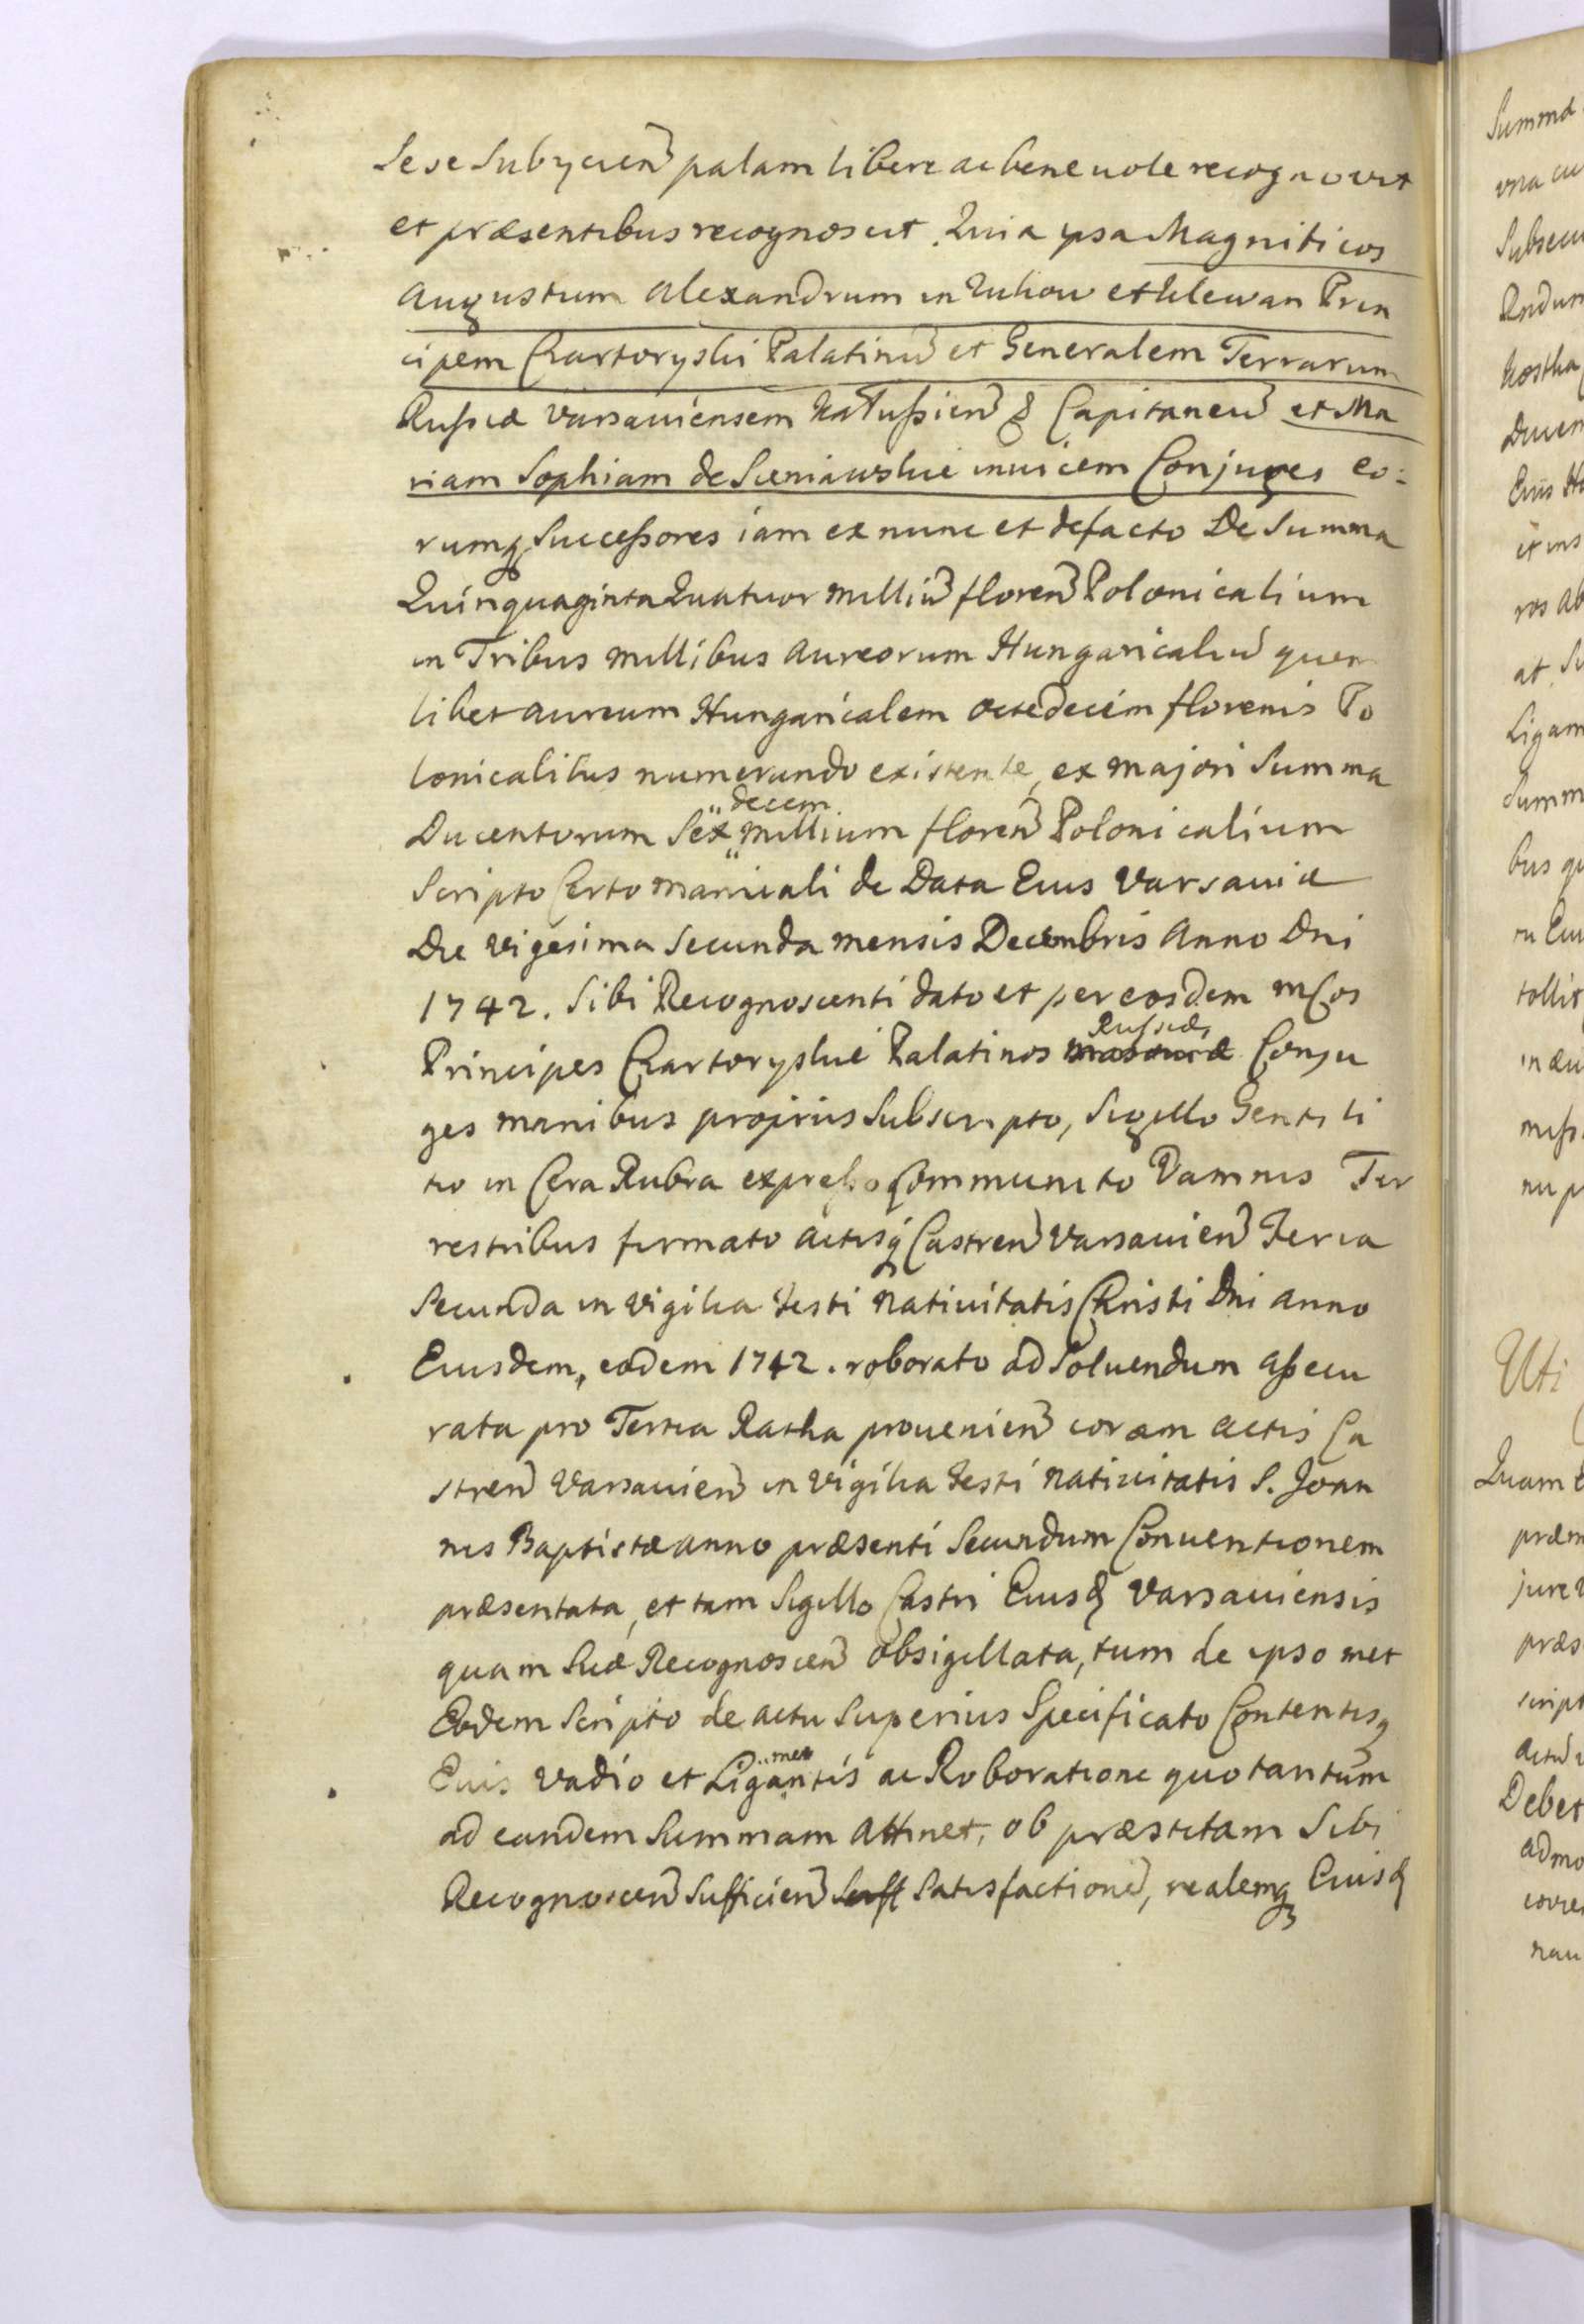 Sese Subycien palam libere ac beneuole recognovit
et præsentibus recognoscit. Quia ypsa Magnificos
Augustum Alexandrum in Zukow et Klewan Prin
cipem Czartoryski Palatinu et Generalem Terrarum
Russiæ Varsauiensem Kałussien & Capitaneu et Ma
riam Sophiam de Sieniawskie inuicem Conjuges eo:
rumq Successores iam ex nunc et defacto De Summa
Quinquaginta Quatuor milliu floren Polonicalium
in Tribus millibus Aureorum Hungaricaliu quem
libet aureum Hungaricalem octodecim florenis Po
lonicalibus numerando existente, ex majori Summa
Ducentorum Sex decem millium floren Polonicalium
Scripto Certo manuali de Data Eius Varsauiæ
Die vigesima Secunda mensis Decembris Anno Dni
1742. Sibi Recognoscenti dato et per eosdem mcos
Principes Czartoryskie Palatinos masouiæ Russiæ, Conju
ges manibus proprius Subscripto, Sigillo Gentili
tio in Cera Rubra expresso Communito Vamnis Ter
restribus firmato actisq Castren Varsauien Feria
Secunda in vigilia Festi Natiuitatis Christi Dni anno
Eiusdem, eodem 1742. roborato ad Soluendum assecu
rata pro Tertia Ratha prouenien coram actis Ca
stren Varsauien in vigilia Festi Natiuitatis S. Joan
nis Baptistæ anno præsenti Secundum Conuentionem
præsentata, et tam Sigillo Castri Eiusd Varsauiensis
quam Suæ Recognoscen obsigillata, tum de ipso met
Eodem Scripto de actu Superius Specificato Contentisq
Euis Vadio et Ligamentis ac Roboratione quo tantum
ad eandem Summam Attinet, ob præstitam Sibi
Recognoscen Sufficien Satisfactione, realemq Eiusd
Summa
vna cu
Subsecu
at Su
Ligam
Summ
bus qu
tollit
Uti
Quam
præm
jure
præs
script
Debet
admo
nau